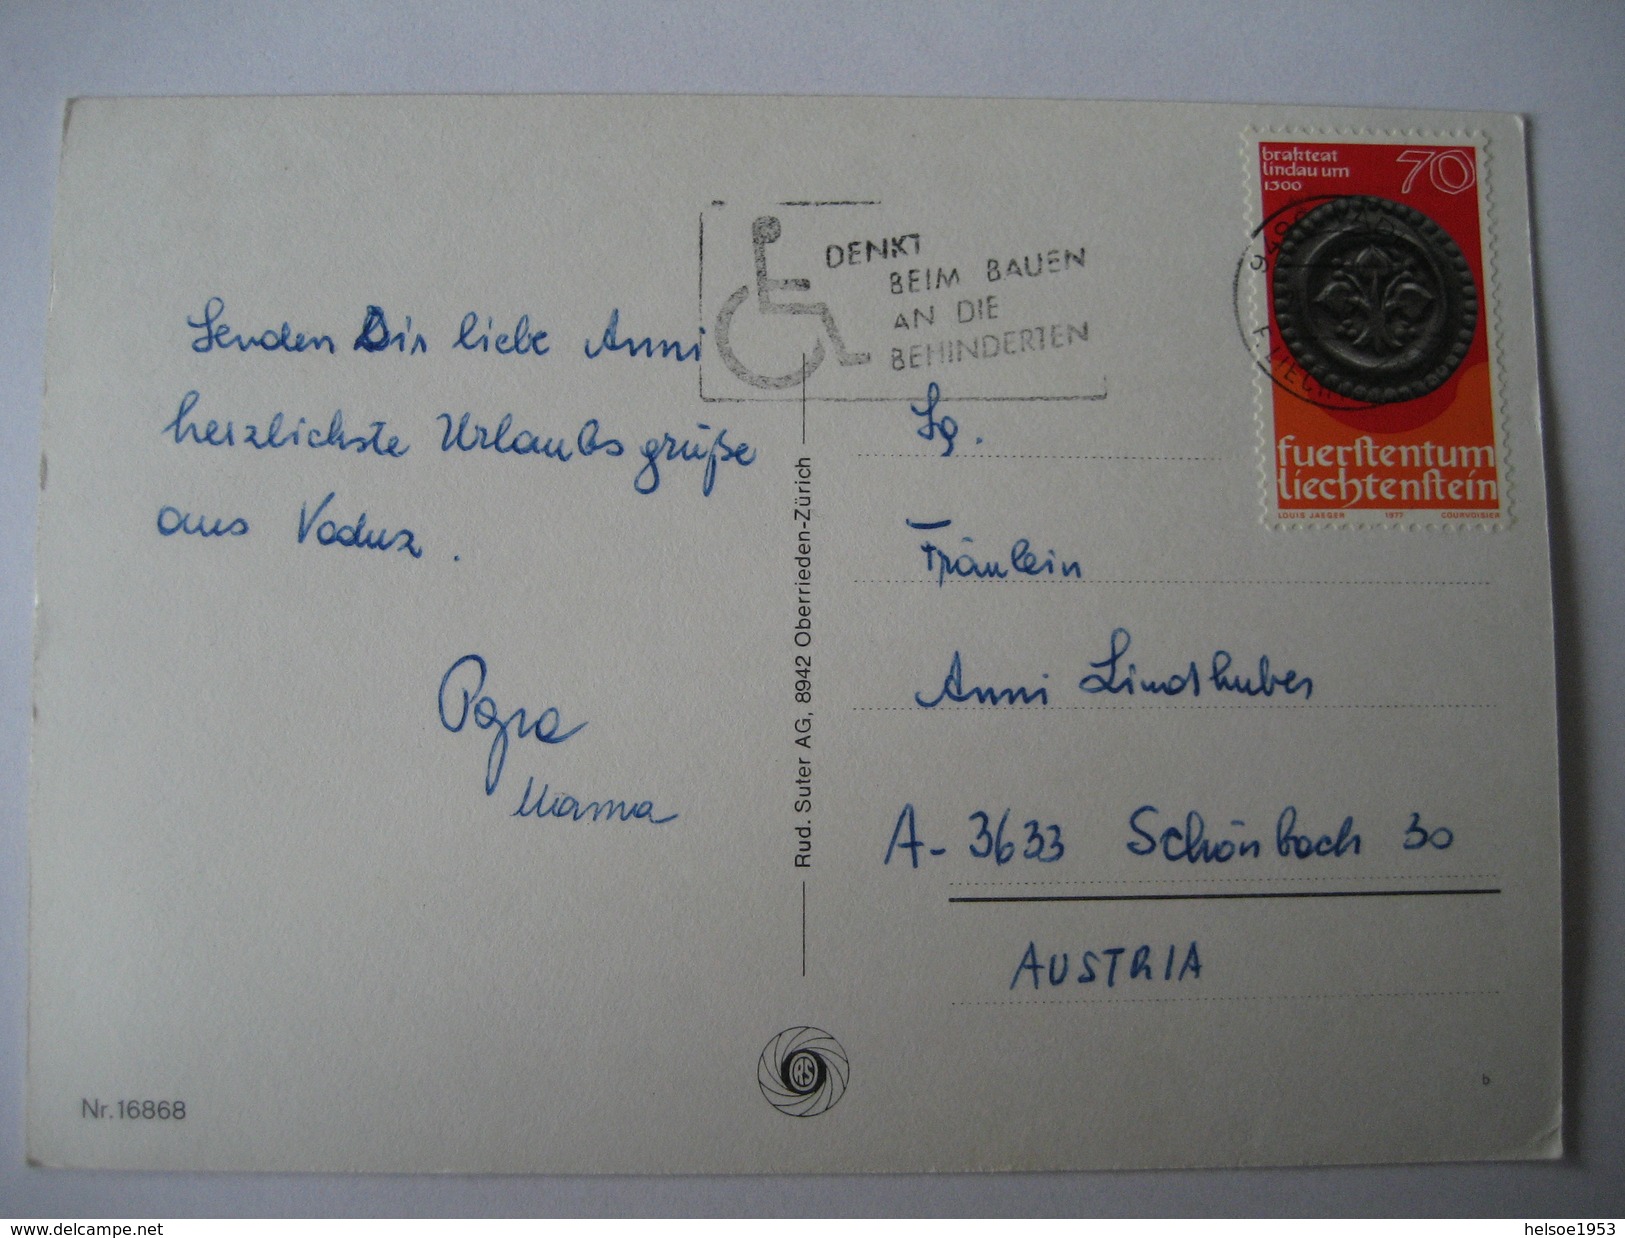 Senden Dir liebe Anni
herzlichste Urlaubsgrüße
aus Vaduz.
Papa
Mama
Nr. 16868
DENKT
BEIM BAUEN
AN DIE
BEHINDERTEN
Rud. Suter AG, 8942 Oberrieden-Zürich
RS
brakteat
lindau um
1300
70
fuerstentum
liechtenstein
LOUIS JAEGER 1977 COURVOISIER
Sg.
Fräulein
Anni Lindshuber
A-3633 Schönbach 30
AUSTRIA
b
www.delcampe.net
helsoe1953